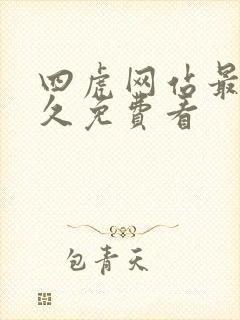 四虎网估最
久免費看
包青天